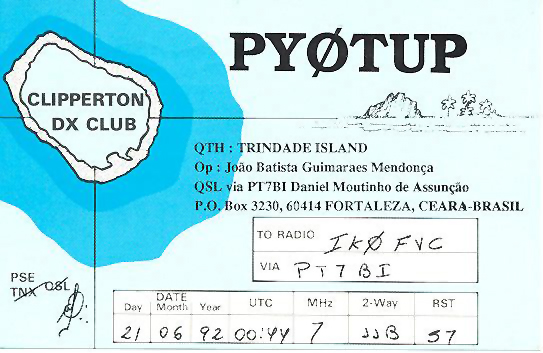 PYØTUP
CLIPPERTON
DX CLUB
QTH : TRINDADE ISLAND
Op : João Batista Guimaraes Mendonça
QSL via PT7BI Daniel Moutinho de Assunção
P.O. Box 3230, 60414 FORTALEZA, CEARA-BRASIL
TO RADIO IKØFVC
VIA PT7BI
PSE
TNX QSL
Day DATE Month Year UTC MHz 2-Way RST
21 06 92 00:44 7 JJB 57